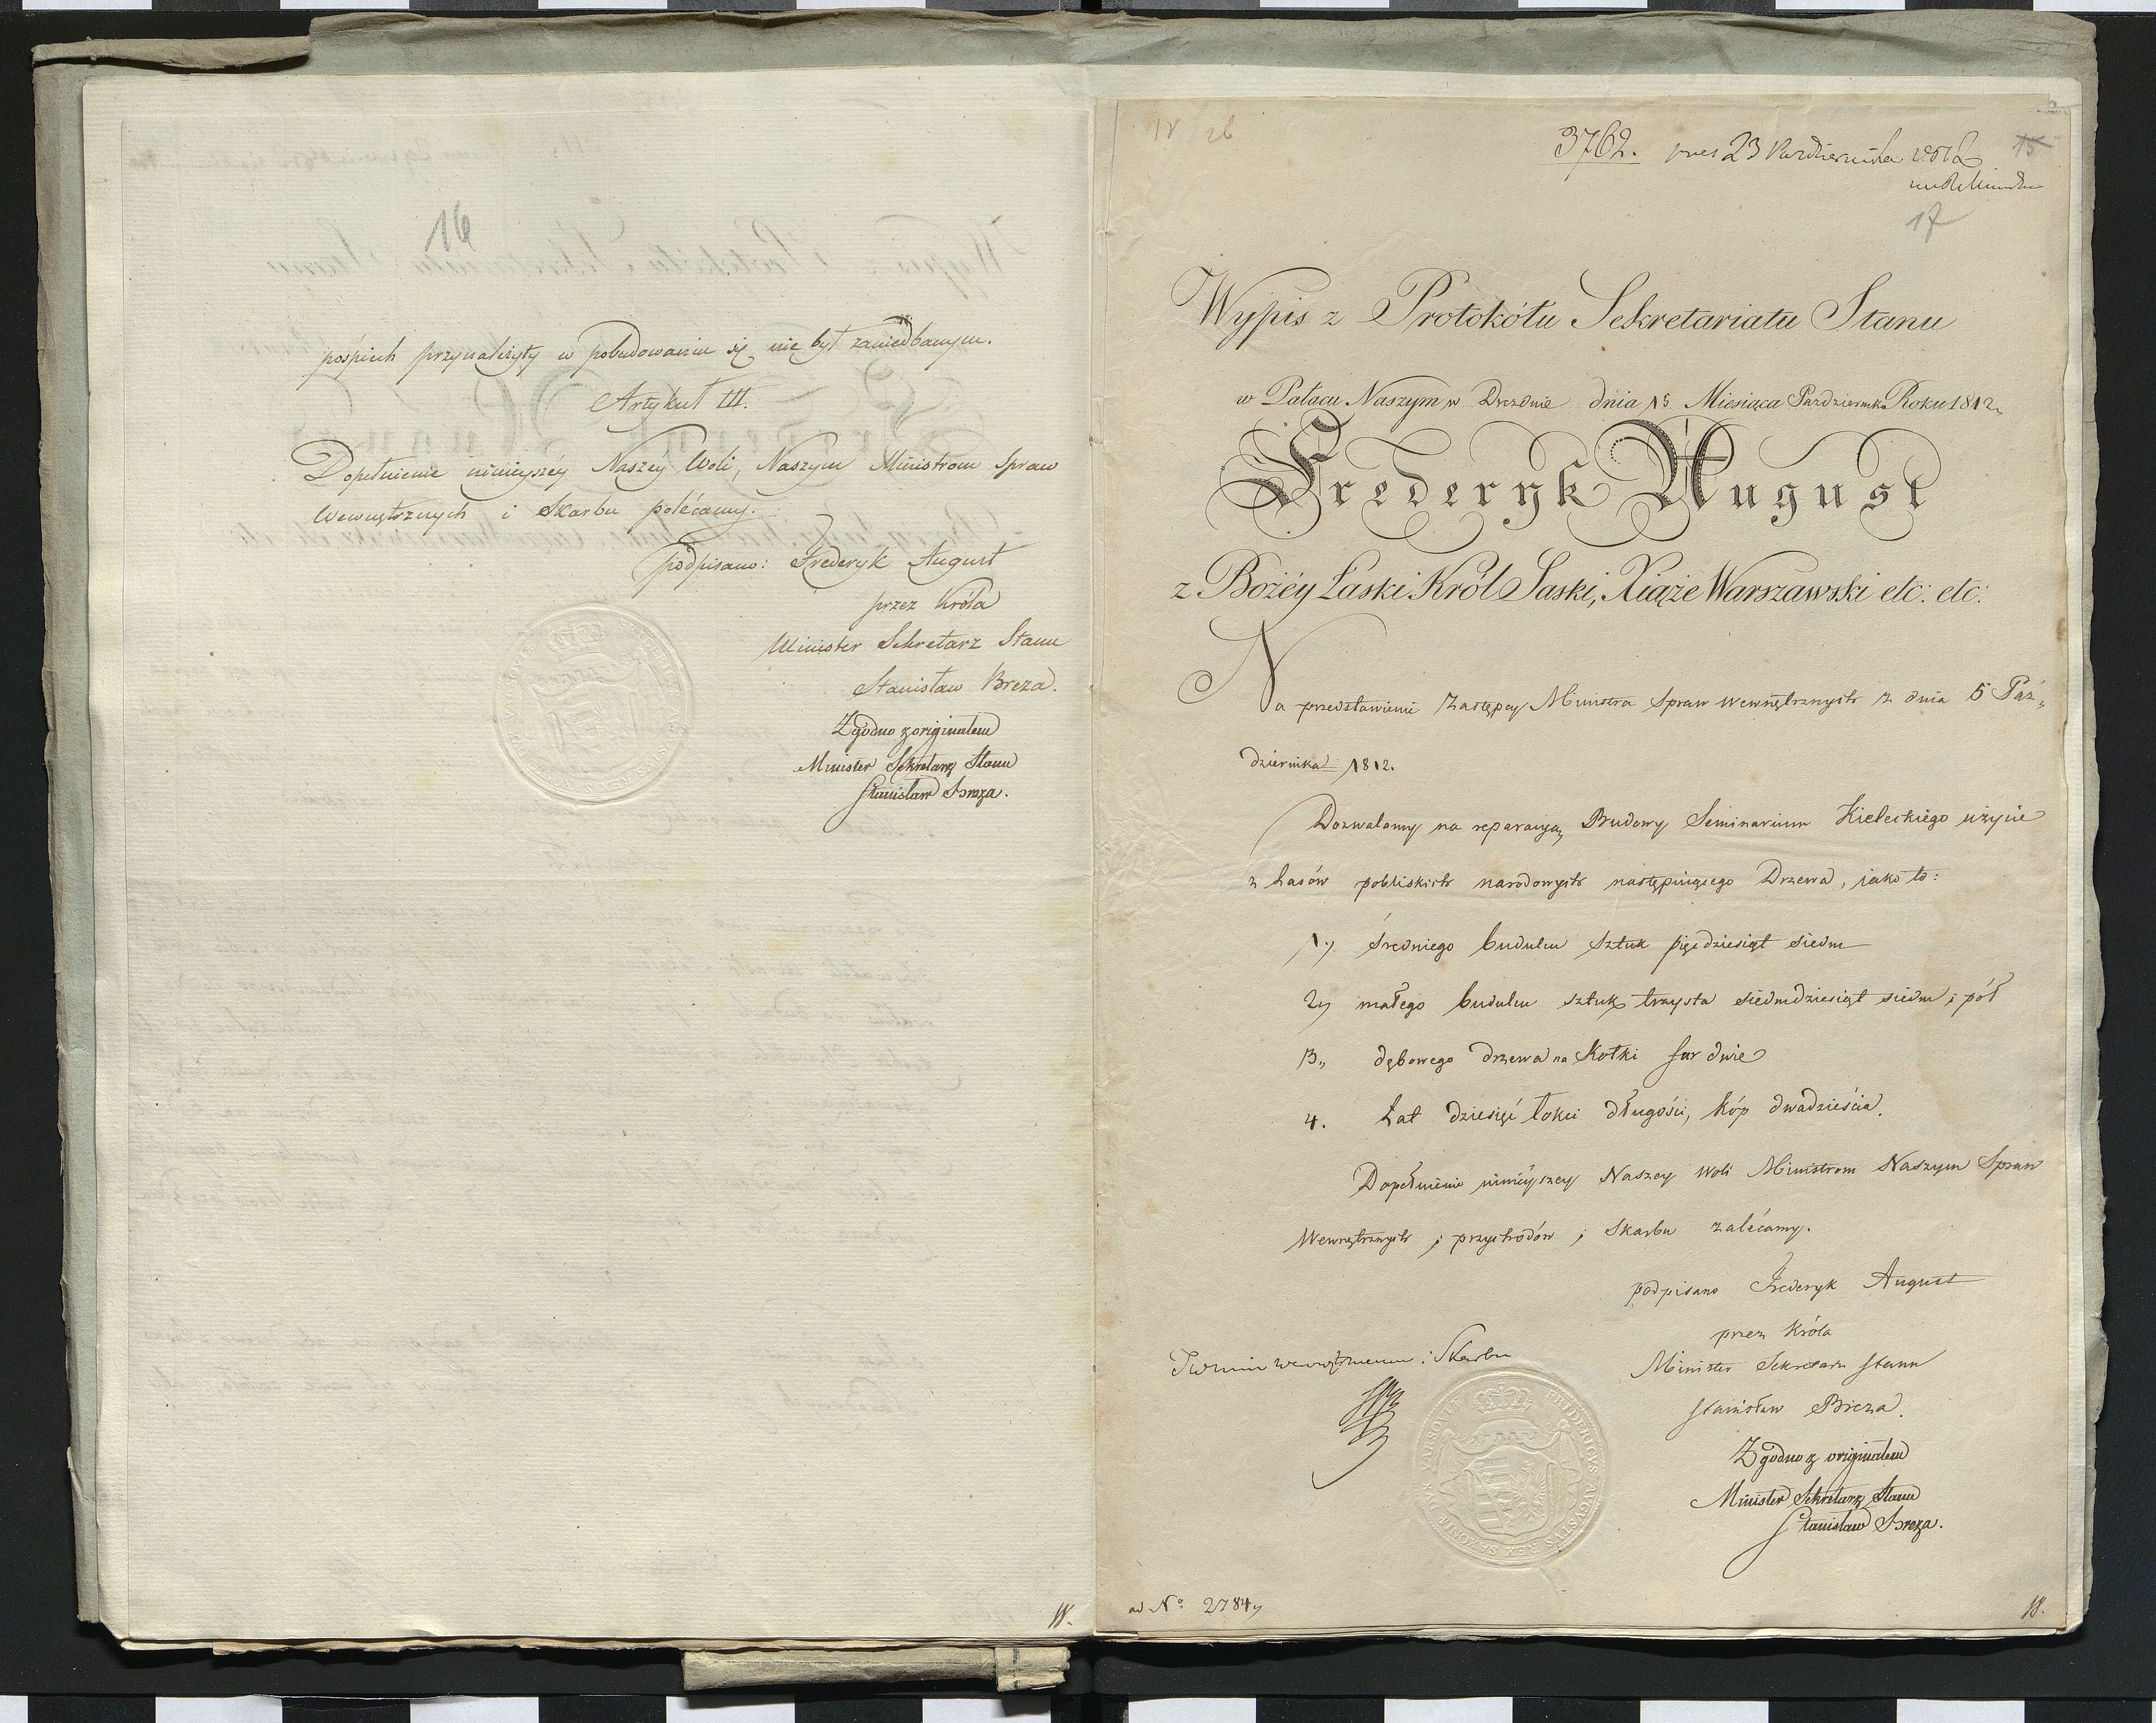 16
pośpiech przynależyty w pobudowaniu się nie był zaniedbanym.
Artykuł III.
Dopełnienie ninieyszéy Naszéy Woli, Naszym Ministrom Spraw
Wewnętrznych i Skarbu polécamy.
podpisano: Frederyk August
przez Króla
Minister Sekretarz Stanu
Stanisław Breza.
Zgodno z originałem
Minister Sekretarz Stanu
Stanisław Breza.
W.
18 26
3762. pres 23 Października 1812
15
17
Wypis z Protokółu Sekretariatu Stanu
w Pałacu Naszym w Dreźdnie dnia 15 Miesiąca Października Roku 1812
Frederyk August
z Bożéy Łaski Król Saski, Xiąże Warszawski etc: etc:
Na przedstawienie Zastępcy Ministra Spraw Wewnętrznych z dnia 5 Paź„
dziernika 1812.
Dozwalamy na reparacyą Budowy Seminarium Kieleckiego użycie
z Lasów pobliskich narodowych następuiącego Drzewa, iako to:
1„ średniego budulcu sztuk pięćdziesiąt siedm
2„ małego budulcu sztuk trzysta siedmdziesiąt siedm i pół
3„ dębowego drzewa na Kołki fur dwie
4. Łat dziesięć łokci długości, kóp dwadzieścia.
Dopełnienie ninieyszey Naszey Woli Ministrom Naszym Spraw
Wewnętrznych i przychodów i Skarbu zalécamy.
podpisano Frederyk August
przez Króla
Minister Sekretarz Stanu
Stanisław Breza.
Zgodno z originałem
Minister Sekretarz Stanu
Stanisław Breza.
i Skarbu
FRIDERICVS AVGVSTVS REX SAXONIÆ DVX VARSOVIÆ
ad No. 2784„
W.